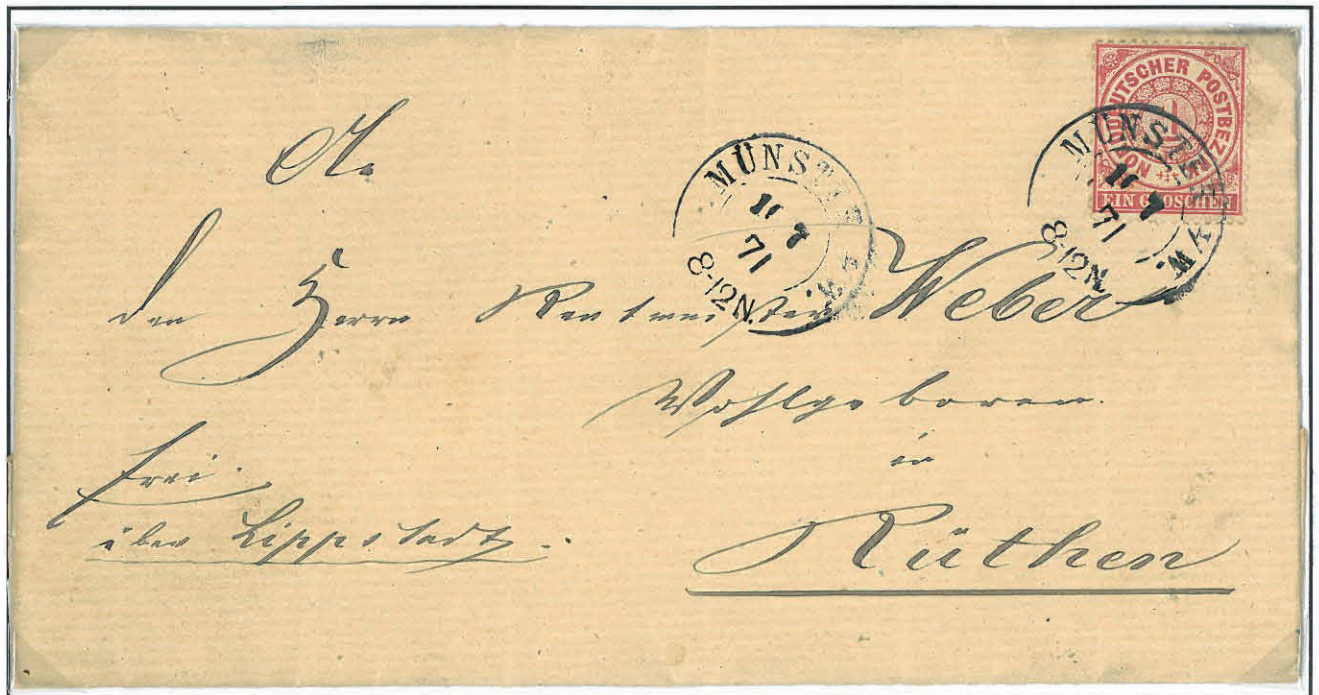 NORDDEUTSCHER POSTBEZ
1
EIN GROSCHEN
MÜNSTER
71
8-12N.
MÜNSTER W.
71
8-12N.
An
den Herrn Rentmeister Weber
Wohlgeboren
in
frei.
über Lippstadt.
Rüthen